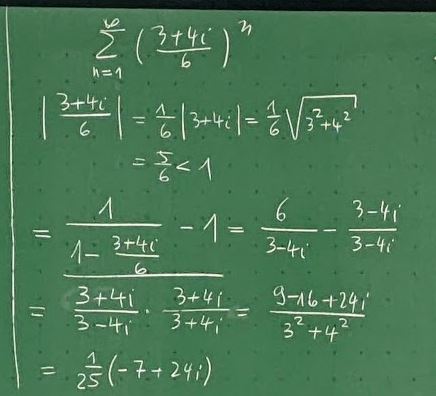 \sum_{n=1}^{\infty} \left( \frac{3+4i}{6} \right)^n
\left| \frac{3+4i}{6} \right| = \frac{1}{6} |3+4i| = \frac{1}{6} \sqrt{3^2+4^2}
= \frac{5}{6} < 1
= \frac{1}{1 - \frac{3+4i}{6}} - 1 = \frac{6}{3-4i} - \frac{3-4i}{3-4i}
= \frac{3+4i}{3-4i} \cdot \frac{3+4i}{3+4i} = \frac{9-16+24i}{3^2+4^2}
= \frac{1}{25} (-7+24i)